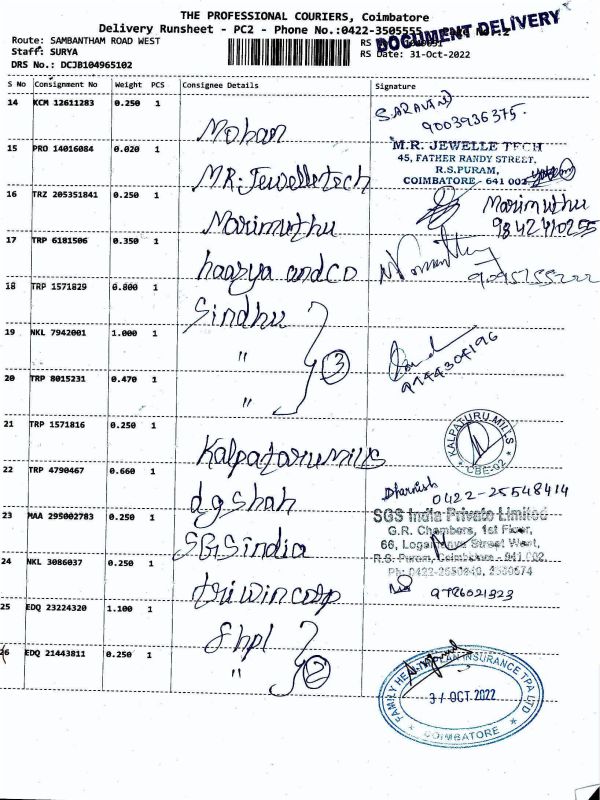 THE PROFESSIONAL COURIERS, Coimbatore
Delivery Runsheet - PC2 - Phone No.:0422-3505555
DOCUMENT DELIVERY
Route: SAMBANTHAM ROAD WEST
Staff: SURYA
RS Date: 31-Oct-2022
DRS No.: DCJB104965102
S No Consignment No Weight PCS Consignee Details Signature
14 KCM 12611283 0.250 1 Mohan
SARAVANA
9003936375.
15 PRO 14016084 0.020 1 MR. Jewelle tech
M.R. JEWELLE TECH
45, FATHER RANDY STREET,
R.S.PURAM,
COIMBATORE - 641 002
16 TRZ 205351841 0.250 1 Marimuthu
Marimuthu
9842410255
17 TRP 6181506 0.350 1 haasya and co
18 TRP 1571829 0.800 1 Sindhu
19 NKL 7942001 1.000 1 "
3
9944304196
20 TRP 8015231 0.470 1 "
21 TRP 1571816 0.250 1 Kalpatarumills
KALPATURU MILLS
CBE-02
22 TRP 4790467 0.660 1 dgshah
Dharnish
0422-25548414
23 MAA 295002783 0.250 1 SGS india
SGS India Private Limited
G.R. Chambers, 1st Floor,
66, Street West,
R.S. Puram, Coimbatore - 641 002
24 NKL 3086037 0.250 1 triwin corp
9786021323
25 EDQ 23224320 1.100 1 fhpl
26 EDQ 21443811 0.250 1 "
2
FAMILY HEALTH PLAN INSURANCE TPA LTD
31 OCT 2022
COIMBATORE